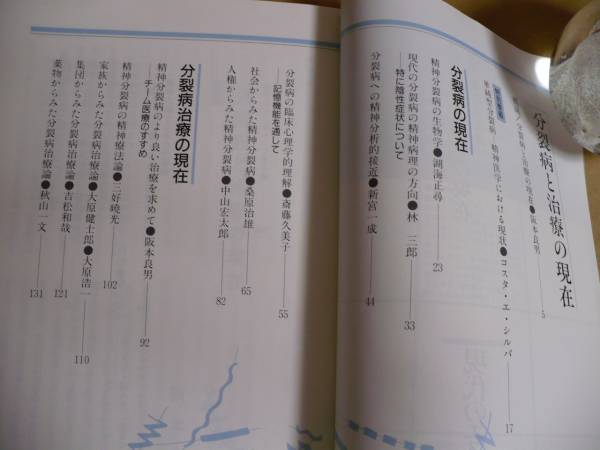 分裂病と治療の現在
分裂病と治療の現在●阪本良男
5
単純型分裂病 精神医学における現状●コスタ・エ・シルバ
17
分裂病の現在
精神分裂病の生物学●融海正尋
23
現代の分裂病の精神病理の方向●林 三郎
―特に陰性症状について
33
分裂病への精神分析的接近●新宮一成
44
分裂病の臨床心理学的理解●斎藤久美子
―記憶機能を通して
55
社会からみた精神分裂病●桑原治雄
65
人権からみた精神分裂病●中山宏太郎
82
分裂病治療の現在
精神分裂病のより良い治療を求めて●阪本良男
―チーム医療のすすめ
92
精神分裂病の精神療法論●三好暁光
102
家族からみた分裂病治療論●大原健士郎●大原浩一
110
集団からみた分裂病治療論●吉松和哉
121
薬物からみた分裂病治療論●秋山一文
131
現代の